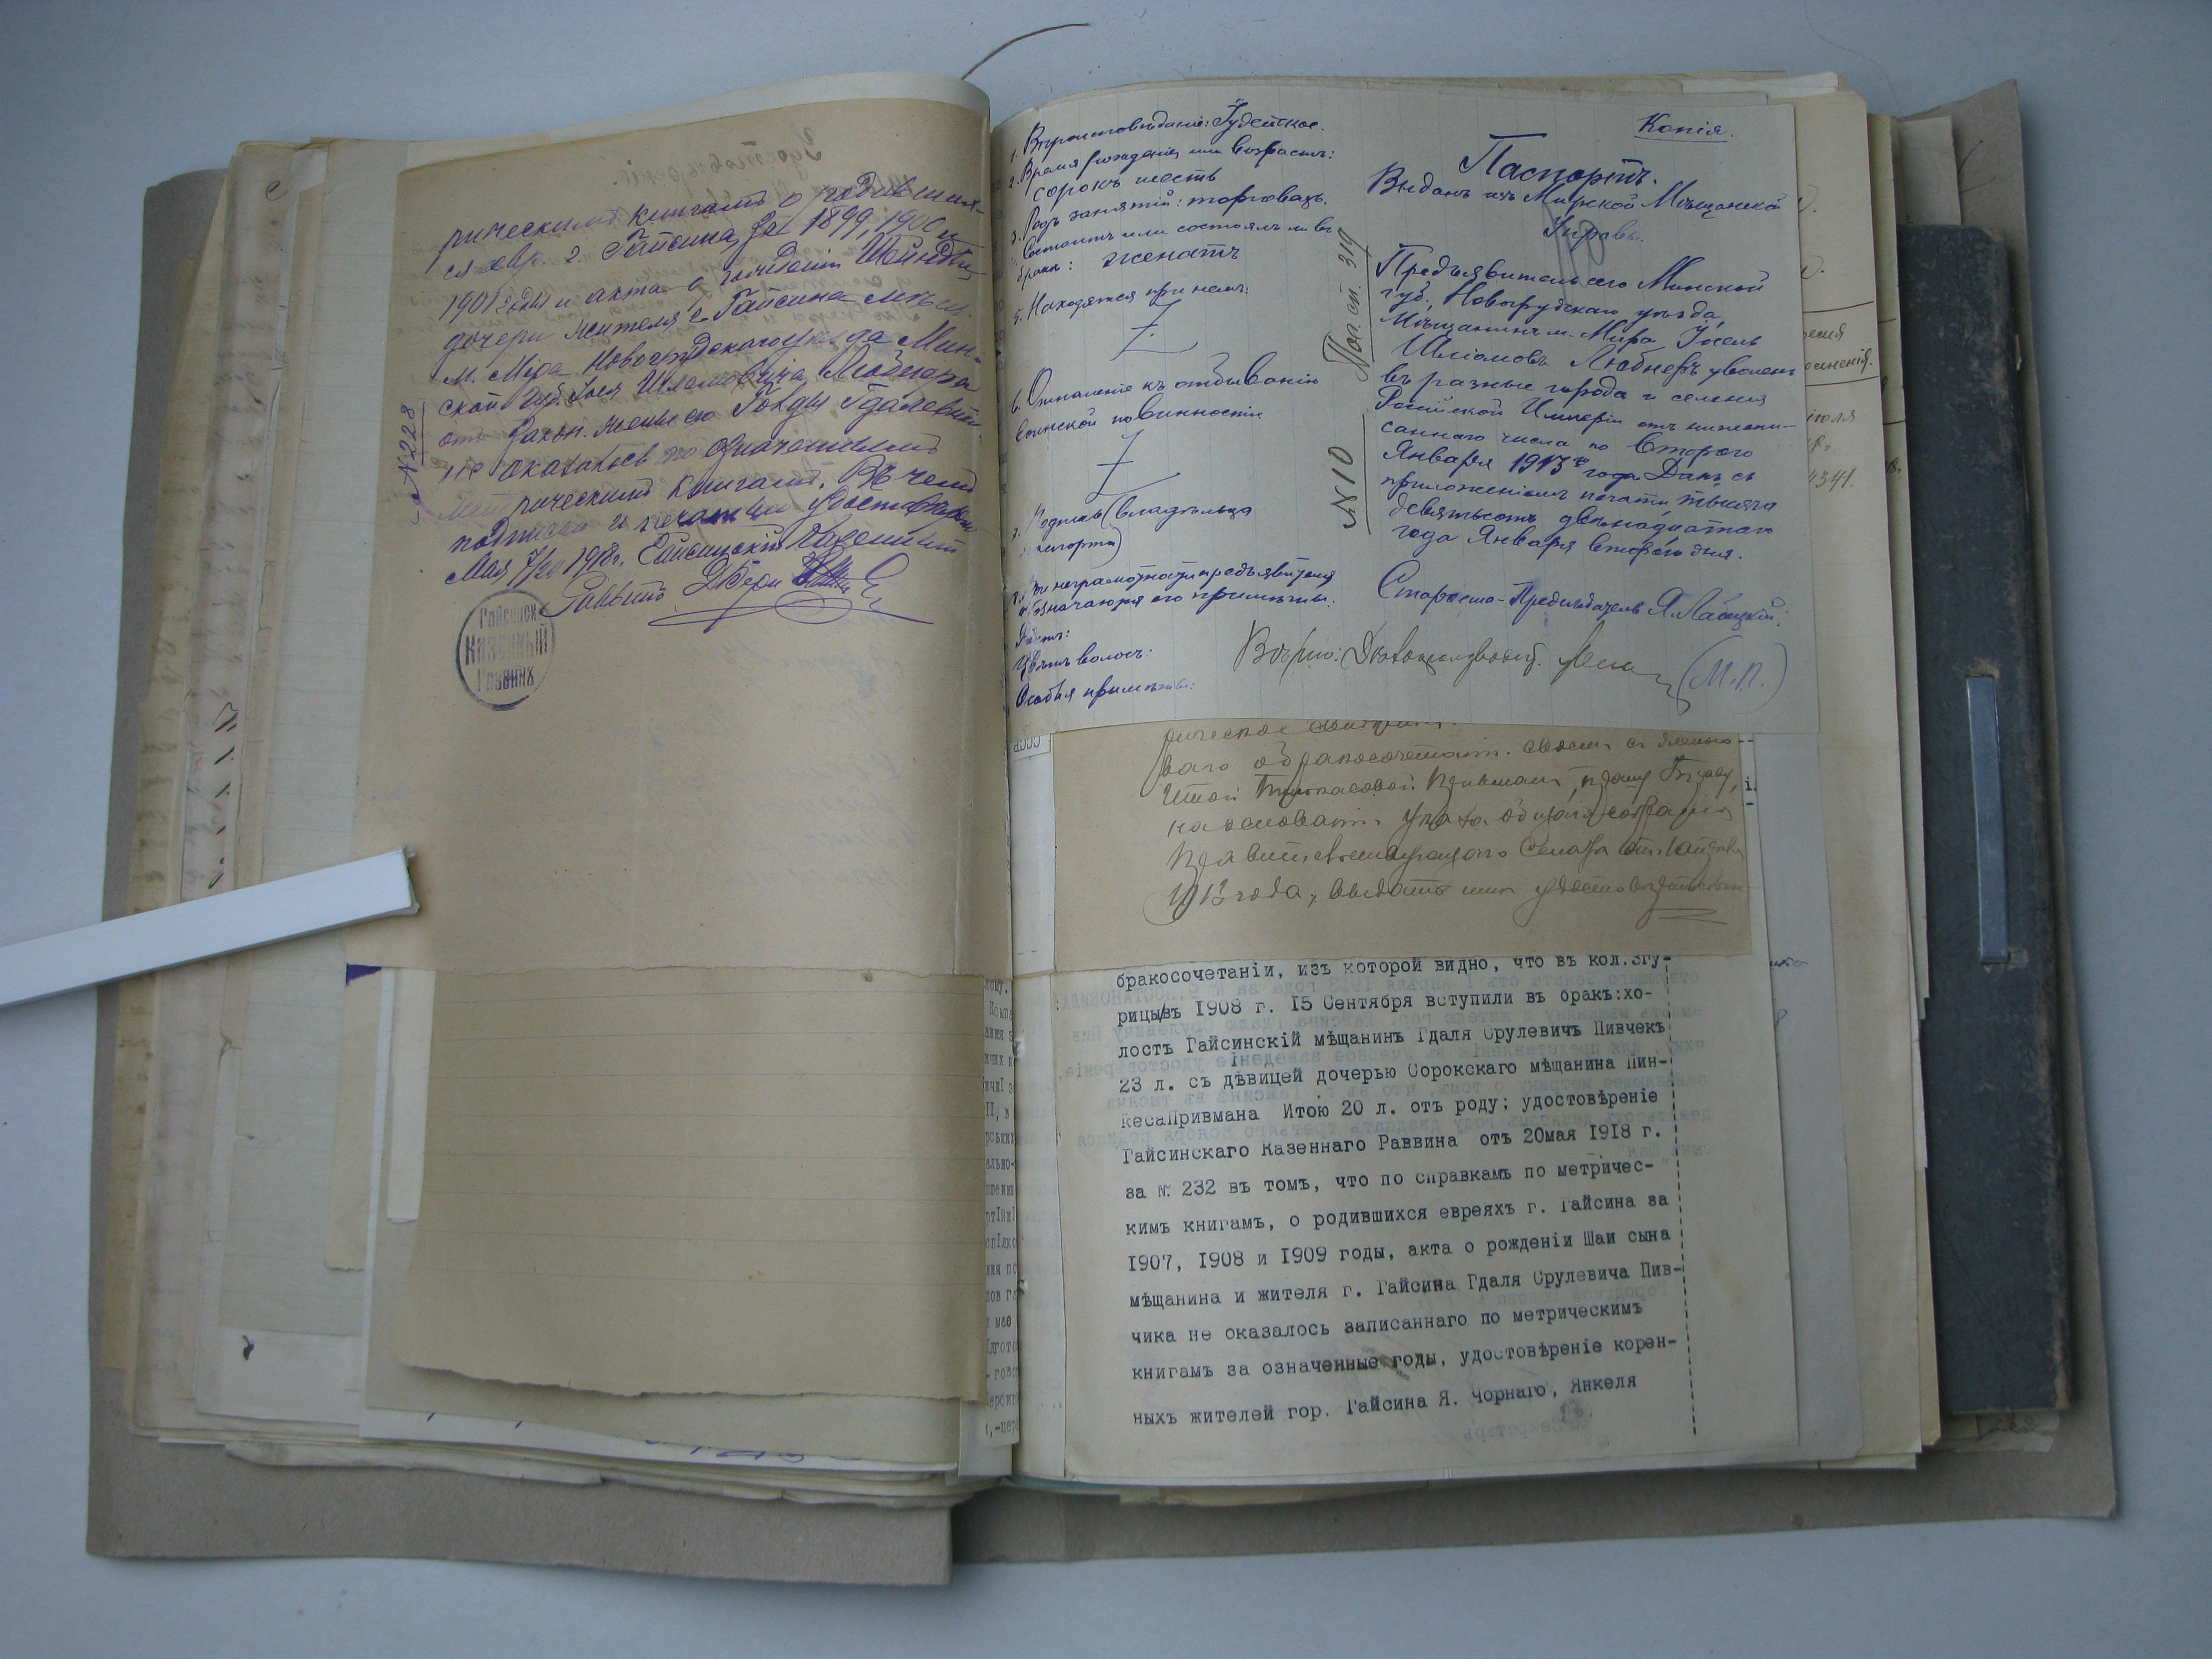 рическимъ книгамъ о родившихъ-
ся евр. г. Гайсина за 1899, 1900 и
1901 годы и акта о рожденіи Шейндли
дочери жителя г. Гайсина мѣщ.
м. Мира Новогрудскаго уѣзда Мин-
ской губ. Іося Шлемовича Любнера
отъ закон. жены его Гольды Гдалевны
не оказалось по означеннымъ
метрическимъ книгамъ. Въ чемъ
подписью и печатью удостовѣряю
Мая 7/20 1918 г. Гайсинскій Казенный
Раввинъ
№ 228
Гайсинск
Казенный
Раввинъ
1. Вѣроисповѣданіе: Іудейское.
2. Время рожденія или возрастъ:
сорокъ шесть
3. Родъ занятій: торговецъ.
Состоитъ или состоялъ ли въ
бракѣ: женатъ
5. Находятся при немъ:
6. Отношеніе къ отбыванію
воинской повинности
7. Подпись (владѣльца
паспорта)
8. При неграмотности предъявителя
обозначаются его примѣты:
Ростъ:
Цвѣтъ волосъ:
Особыя примѣты:
Копія.
Паспортъ.
Выданъ изъ Мирской Мѣщанской
Управы.
№ 10 Пос. сп. 319
Предъявитель сего Минской
губ., Новогрудскаго уѣзда,
Мѣщанинъ м. Мира Іосель
Шліомовъ Любнеръ уволенъ
въ разные города и селенія
Россійской Имперіи отъ нижепи-
саннаго числа по Второго
Января 1913 года. Данъ съ
приложеніемъ печати тысяча
девятьсотъ двѣнадцатаго
года Января второго дня.
Староста-Предсѣдатель Я.
Вѣрно: (М.П.)
рическое
ваго о бракосочетаніи своемъ съ
Итой Пинкасовой Привманъ, прошу
на основаніи указа общаго собранія
Правительствующаго Сената отъ
1913 года, выдать мнѣ
бракосочетаніи, изъ которой видно, что въ кол.Згу-
рицы въ 1908 г. 15 Сентября вступили въ бракъ:хо-
лостъ Гайсинскій мѣщанинъ Гдаля Срулевичъ Пивчекъ
23 л. съ дѣвицей дочерью Сорокскаго мѣщанина Пин-
кеса Привмана Итою 20 л. отъ роду; удостовѣреніе
Гайсинскаго Казеннаго Раввина отъ 20мая 1918 г.
за № 232 въ томъ, что по справкамъ по метричес-
кимъ книгамъ, о родившихся евреяхъ г. Гайсина за
1907, 1908 и 1909 годы, акта о рожденіи Шаи сына
мѣщанина и жителя г. Гайсина Гдаля Срулевича Пив-
чика не оказалось записаннаго по метрическимъ
книгамъ за означенные годы, удостовѣреніе корен-
ныхъ жителей гор. Гайсина Я. Чорнаго, Янкеля